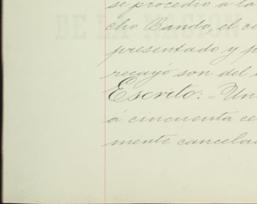 se procedio a la
cho Bando, el ce
presentado, y p
recayó son del s
Escrito: - Un
á cincuenta ce
mente cancela